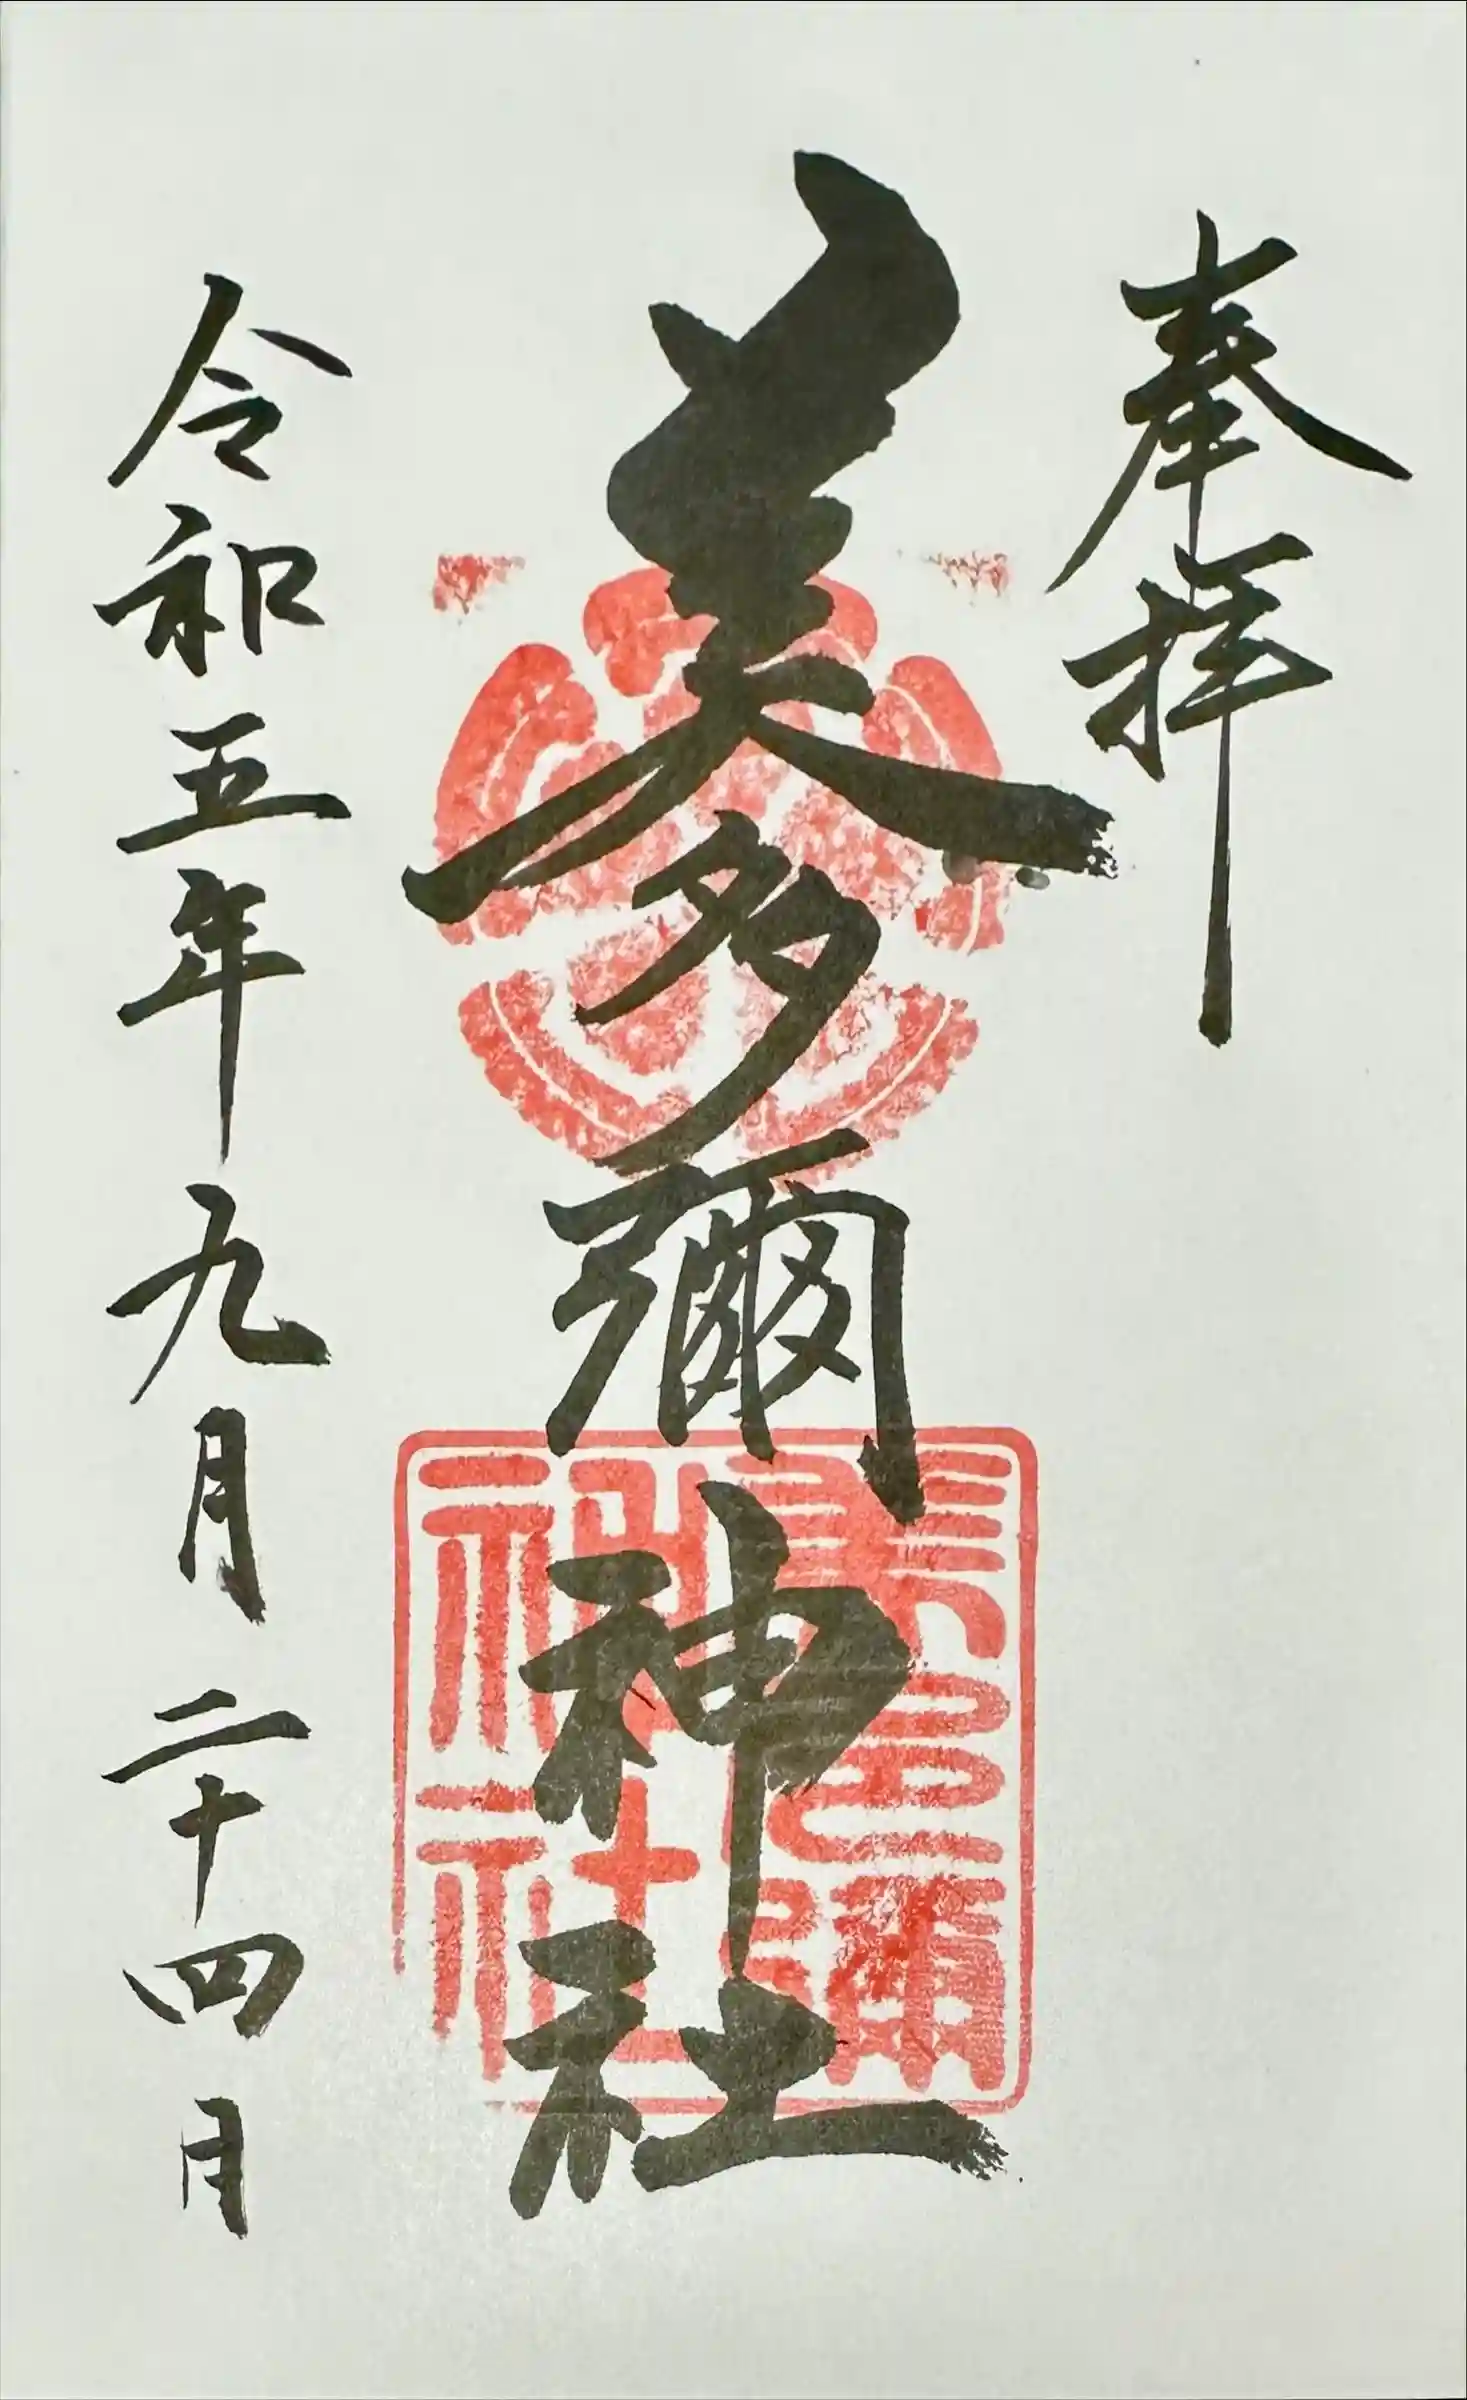 奉拝
美多彌神社
美多彌神社
令和五年九月二十四日